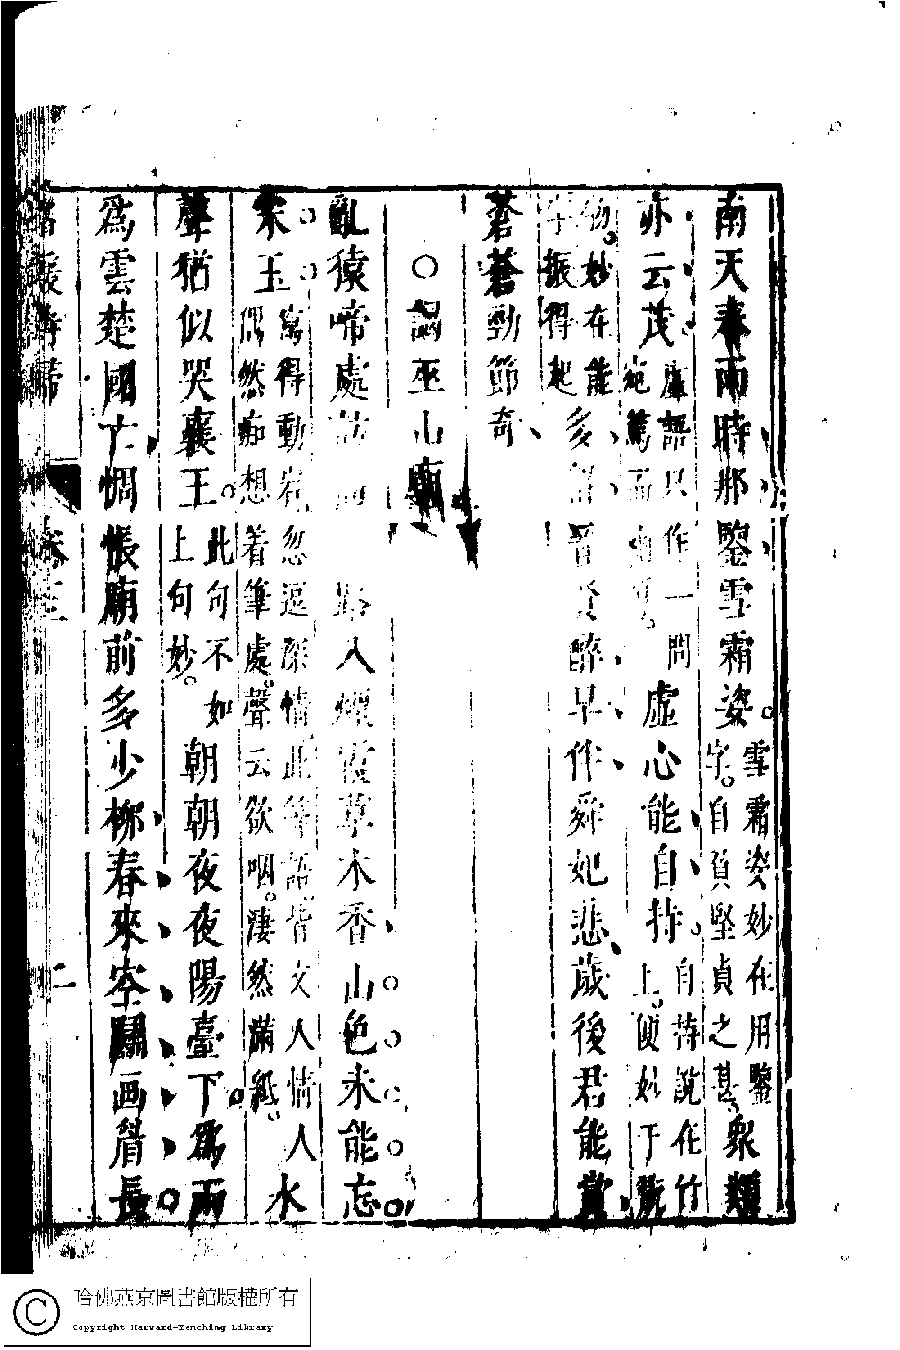 南天春雨時那鑒雪霜姿雪霜姿妙在用鑒字自負堅貞之甚衆類
亦云茂塵語只作一問虛心能自持自持說在竹上便妙于
物妙在能字振得起多留晉賢醉早伴舜妃悲歲後君能賞
蒼蒼勁節奇
○謁巫山廟
亂猿啼處訪 路入煙霞草木香山色未能忘
宋玉寫得動宕忽逗深情此等語皆文人情人偶然痴想着筆處聲云欲咽淒然滿紙水
聲猶似哭襄王此句不如上句妙朝朝夜夜陽臺下爲雨
爲雲楚國亡惆悵廟前多少柳春來空鬭画眉長
名媛詩歸 卷 二
哈佛燕京圖書館版權所有
Copyright Harvard-Yenching Library